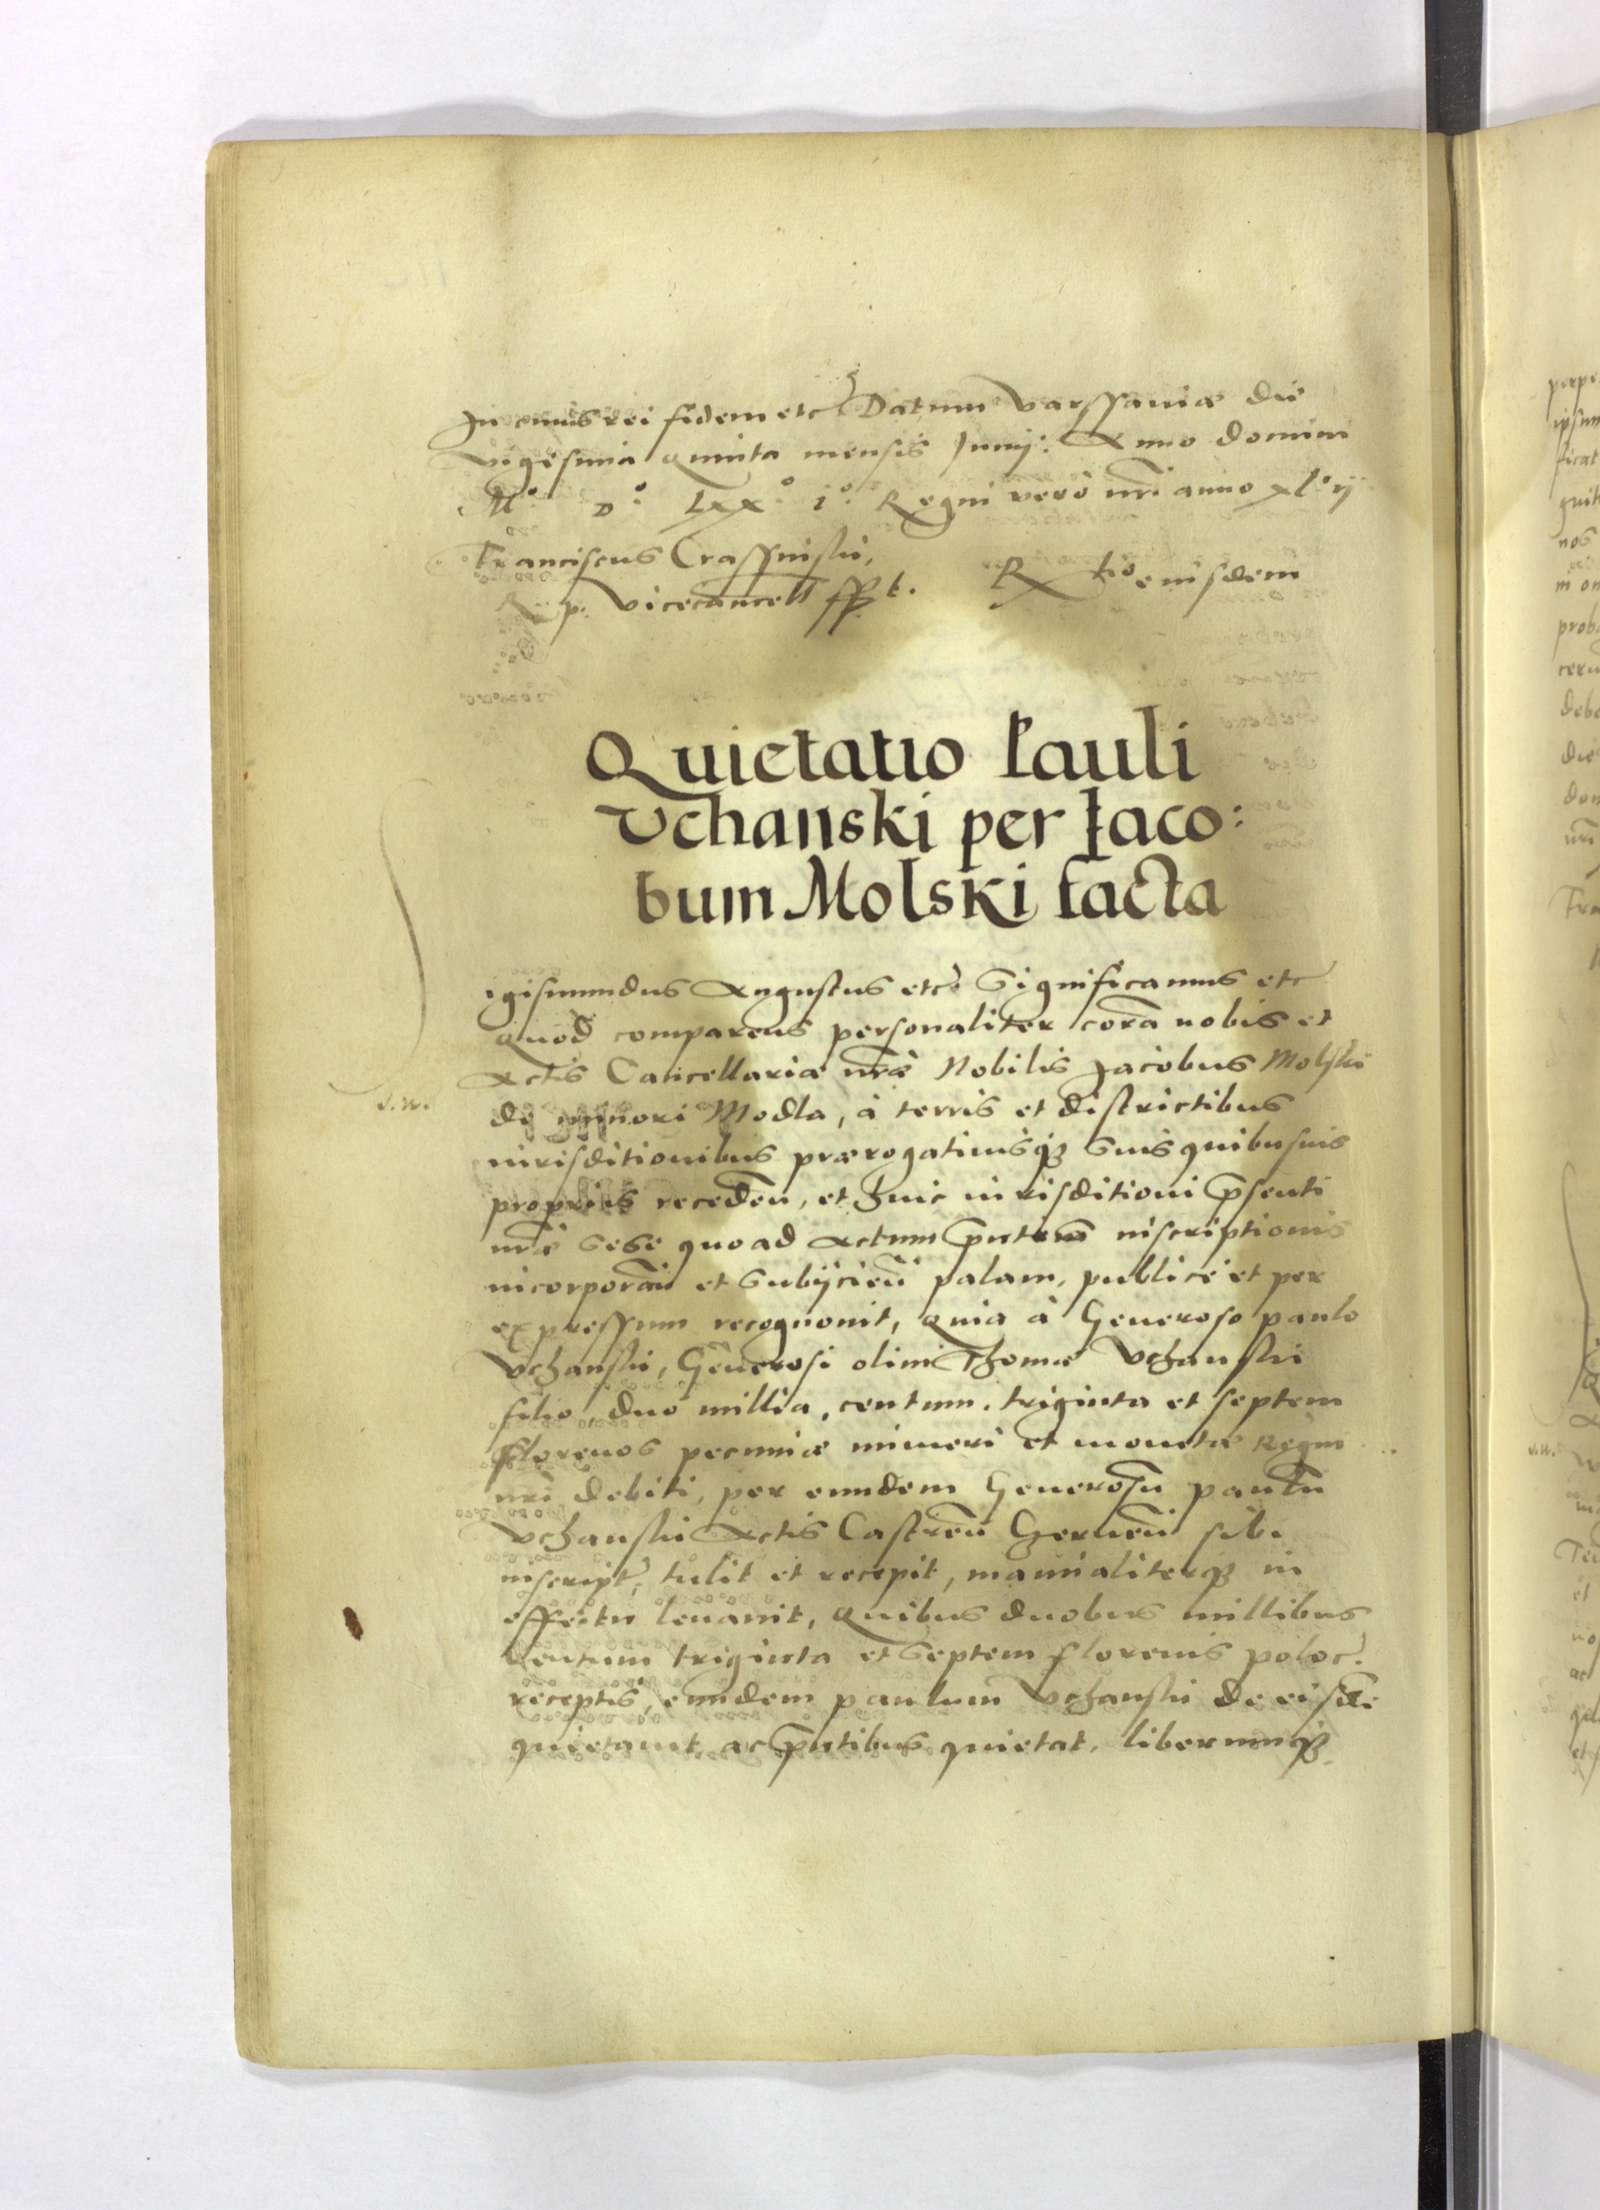 In cuius rei fidem etc Datum varssaviæ die
vigesima quinta mensis Junij: Anno domini
M° D° Lxx° i° Regni verò nrī anno xl°ij
Franciscus Crassinski,
R. p. vicecancell sspt.
Rtio eiusdem
Quietatio Pauli
Vchanski per Jaco:
bum Molski facta
igismundus Augustus etc Significamus etc
quod comparens personaliter corā nobis et
Actis Cancellariæ nræ Nobilis Jacobus Molski
de minori Modla, à terris et districtibus
iurisditionibus prærogatiuisq3 suis quibusuis
proprijs receden̄, et huic iurisditioni p̄senti
nrē sese quoad Actum p̄ntem inscriptionis
incorporān et subijcien̄ palam, publicè et per
expressum recognouit, quia à Generoso paulo
Vchanski, Generosi olim Thomæ Vchanski
filio duo millia, centum, triginta et septem
florenos pecuniæ numeri et monetæ Regni
nrī debiti, per eundem Generosū paulū
Vchanski Actis Castren̄ Gernen̄ sibi
inscript, tulit et recepit, manualiterq3 in
effectu leuauit, quibus duobus millibus
centum triginta et septem florenis poloc.
receptis, eundem paulum Vchanski de eisdē
quietauit ac p̄ntibus quietat, liberumq3